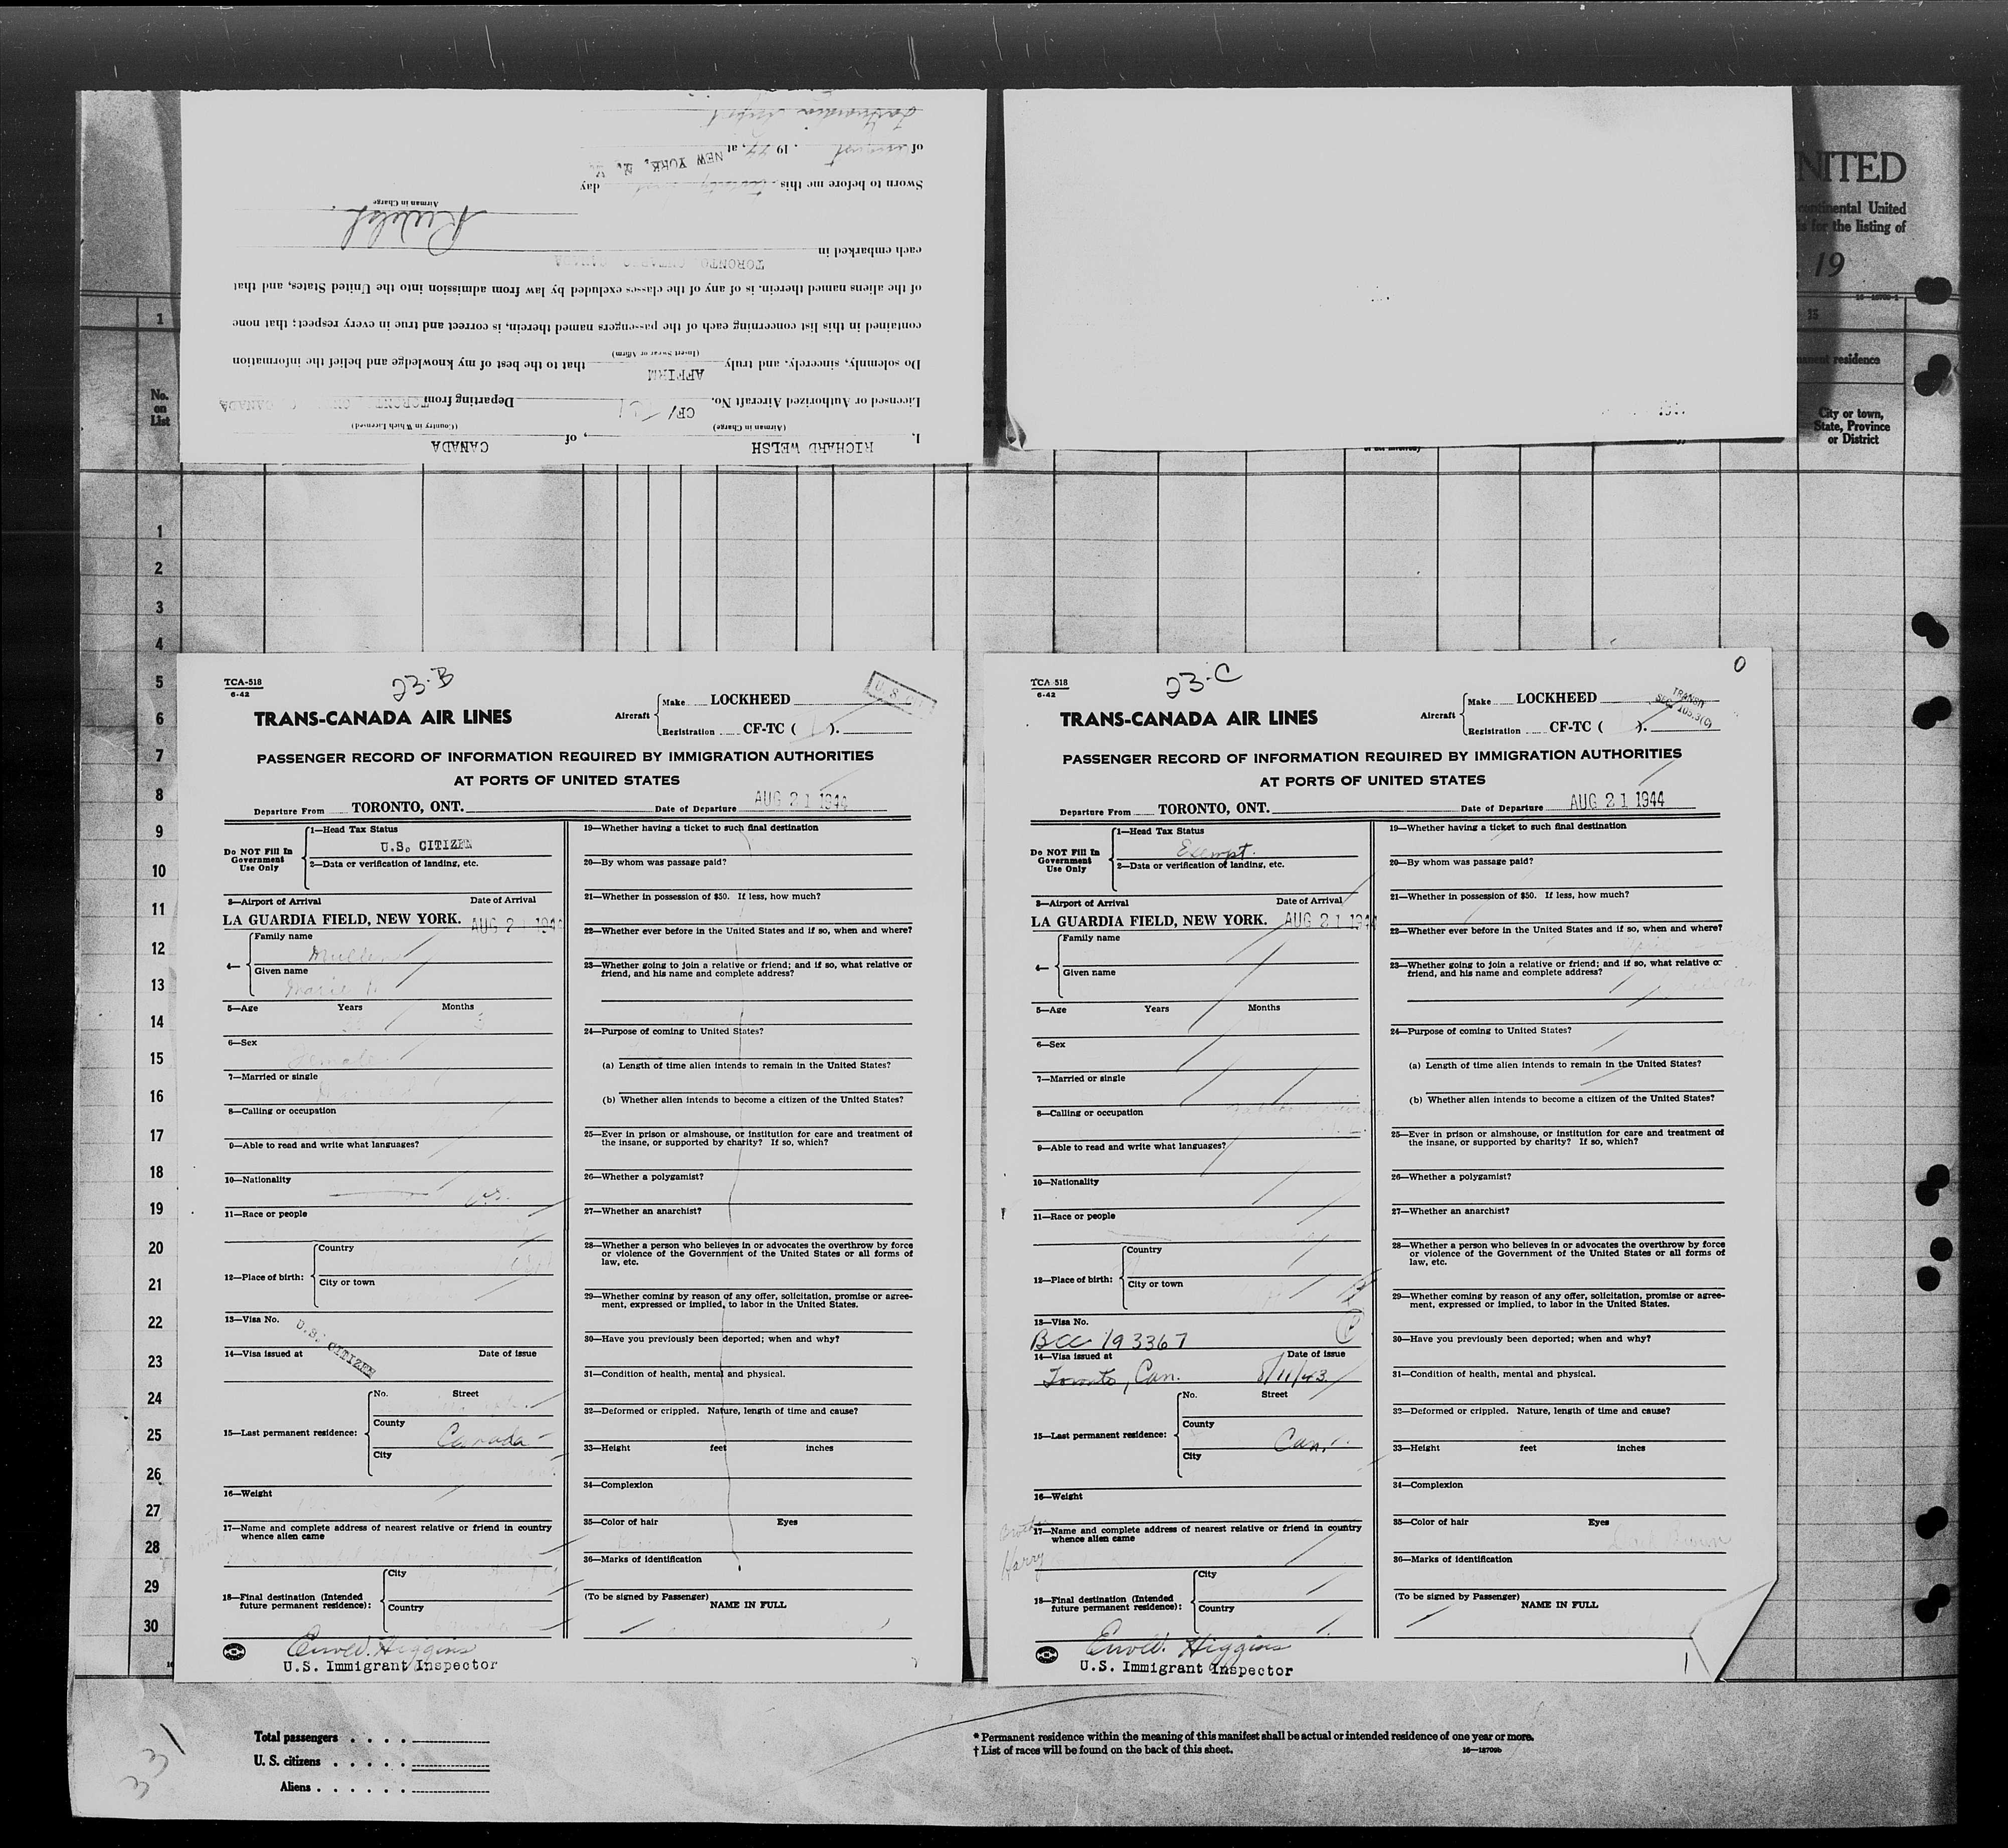 I, RICHARD WELSH, of CANADA
(Airman in Charge) (Country in Which Licensed)
Licensed or Authorized Aircraft No. CF/ Departing from TORONTO, CANADA
AFFIRM
Do solemnly, sincerely, and truly that to the best of my knowledge and belief the information
(Insert Swear or Affirm)
contained in this list concerning each of the passengers named therein, is correct and true in every respect; that none
of the aliens named therein, is of any of the classes excluded by law from admission into the United States, and that
TORONTO, ONTARIO CANADA
each embarked in
Airman in Charge
Sworn to before me this day
of 19 44, at NEW YORK, N. Y.
NITED
continental United
for the listing of
, 19
1
15
permanent residence
No.
on
List
City or town,
State, Province
or District
1
2
3
4
5
6
7
8
9
10
11
12
13
14
15
16
17
18
19
20
21
22
23
24
25
26
27
28
29
30
TCA-518
6-42
23-B
U S C
TRANS-CANADA AIR LINES
Aircraft
Make LOCKHEED
Registration CF-TC ( ).
PASSENGER RECORD OF INFORMATION REQUIRED BY IMMIGRATION AUTHORITIES
AT PORTS OF UNITED STATES
Departure From TORONTO, ONT. Date of Departure AUG 21 1944
Do NOT Fill In
Government
Use Only
1—Head Tax Status
U.S. CITIZEN
2—Data or verification of landing, etc.
3—Airport of Arrival Date of Arrival
LA GUARDIA FIELD, NEW YORK. AUG 21 1944
4—
Family name
Mullen
Given name
Marie
5—Age Years Months
6—Sex
Female
7—Married or single
8—Calling or occupation
9—Able to read and write what languages?
10—Nationality
U.S.
11—Race or people
12—Place of birth:
Country
City or town
13—Visa No.
U.S. CITIZEN
14—Visa issued at Date of issue
15—Last permanent residence:
No. Street
County
Canada
City
16—Weight
17—Name and complete address of nearest relative or friend in country
whence alien came
18—Final destination (Intended
future permanent residence):
City
Country
19—Whether having a ticket to such final destination
20—By whom was passage paid?
21—Whether in possession of $50. If less, how much?
22—Whether ever before in the United States and if so, when and where?
23—Whether going to join a relative or friend; and if so, what relative or
friend, and his name and complete address?
24—Purpose of coming to United States?
(a) Length of time alien intends to remain in the United States?
(b) Whether alien intends to become a citizen of the United States?
25—Ever in prison or almshouse, or institution for care and treatment of
the insane, or supported by charity? If so, which?
26—Whether a polygamist?
27—Whether an anarchist?
28—Whether a person who believes in or advocates the overthrow by force
or violence of the Government of the United States or all forms of
law, etc.
29—Whether coming by reason of any offer, solicitation, promise or agree-
ment, expressed or implied, to labor in the United States.
30—Have you previously been deported; when and why?
31—Condition of health, mental and physical.
32—Deformed or crippled. Nature, length of time and cause?
33—Height feet inches
34—Complexion
35—Color of hair Eyes
36—Marks of identification
(To be signed by Passenger)
NAME IN FULL
Higgins
U.S. Immigrant Inspector
TCA-518
6-42
23-C
0
TRANS-CANADA AIR LINES
Aircraft
Make LOCKHEED
Registration CF-TC ( ).
TRANSIT
SEC. 103.3(C)
PASSENGER RECORD OF INFORMATION REQUIRED BY IMMIGRATION AUTHORITIES
AT PORTS OF UNITED STATES
Departure From TORONTO, ONT. Date of Departure AUG 21 1944
Do NOT Fill In
Government
Use Only
1—Head Tax Status
Exempt.
2—Data or verification of landing, etc.
3—Airport of Arrival Date of Arrival
LA GUARDIA FIELD, NEW YORK. AUG 21 1944
4—
Family name
Given name
5—Age Years Months
6—Sex
7—Married or single
8—Calling or occupation
9—Able to read and write what languages?
10—Nationality
11—Race or people
12—Place of birth:
Country
City or town
13—Visa No.
BCC 193367
14—Visa issued at Date of issue
Toronto, Can. 8/11/43
15—Last permanent residence:
No. Street
County
Can.
City
16—Weight
Brother
17—Name and complete address of nearest relative or friend in country
whence alien came
Harry
18—Final destination (Intended
future permanent residence):
City
Country
19—Whether having a ticket to such final destination
20—By whom was passage paid?
21—Whether in possession of $50. If less, how much?
22—Whether ever before in the United States and if so, when and where?
23—Whether going to join a relative or friend; and if so, what relative or
friend, and his name and complete address?
24—Purpose of coming to United States?
(a) Length of time alien intends to remain in the United States?
(b) Whether alien intends to become a citizen of the United States?
25—Ever in prison or almshouse, or institution for care and treatment of
the insane, or supported by charity? If so, which?
26—Whether a polygamist?
27—Whether an anarchist?
28—Whether a person who believes in or advocates the overthrow by force
or violence of the Government of the United States or all forms of
law, etc.
29—Whether coming by reason of any offer, solicitation, promise or agree-
ment, expressed or implied, to labor in the United States.
30—Have you previously been deported; when and why?
31—Condition of health, mental and physical.
32—Deformed or crippled. Nature, length of time and cause?
33—Height feet inches
34—Complexion
35—Color of hair Eyes
Dark Brown
36—Marks of identification
(To be signed by Passenger)
NAME IN FULL
Higgins
U.S. Immigrant Inspector
Total passengers
U. S. citizens
Aliens
331
* Permanent residence within the meaning of this manifest shall be actual or intended residence of one year or more.
† List of races will be found on the back of this sheet.
16—18709b